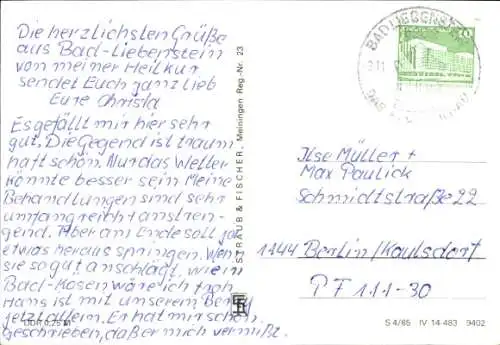 Die herzlichsten Grüße
aus Bad-Liebenstein
von meiner Heilkur
sendet Euch ganz lieb
Eure Christa
Es gefällt mir hier sehr
gut. Die Gegend ist traum
haft schön. Nur das Wetter
könnte besser sein. Meine
Behandlungen sind sehr
umfangreich + anstren-
gend. Aber am Ende soll ja
etwas heraus springen. Wenn
sie so gut anschlägt, wie in
Bad-Kösen wäre ich froh
Hans ist mit unserem
jetzt allein. Er hat mir schon
geschrieben, daß er mich vermißt.
DDR 0,25 M
STRAUB & FISCHER, Meiningen Reg.-Nr. 23
BAD LIEBENST
10
Ilse Müller +
Max Paulick
Schmidtstraße 22
1144 Berlin/Kaulsdorf
PF 111-30
S 4/85 IV-14-483 9402